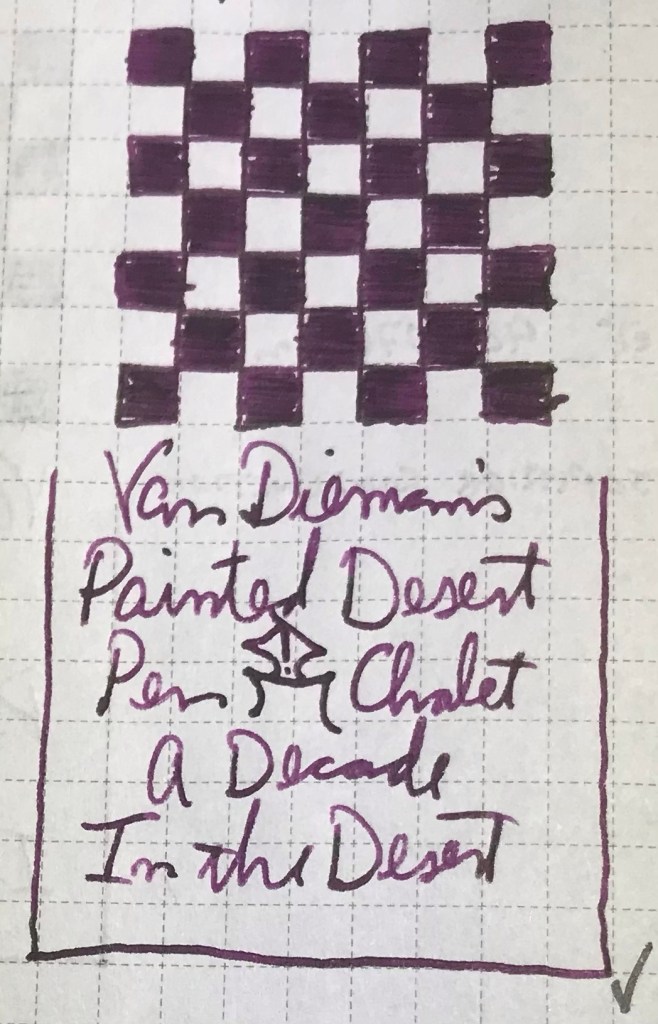 Van Dieman's
Painted Desert
Pen Chalet
A Decade
In the Desert